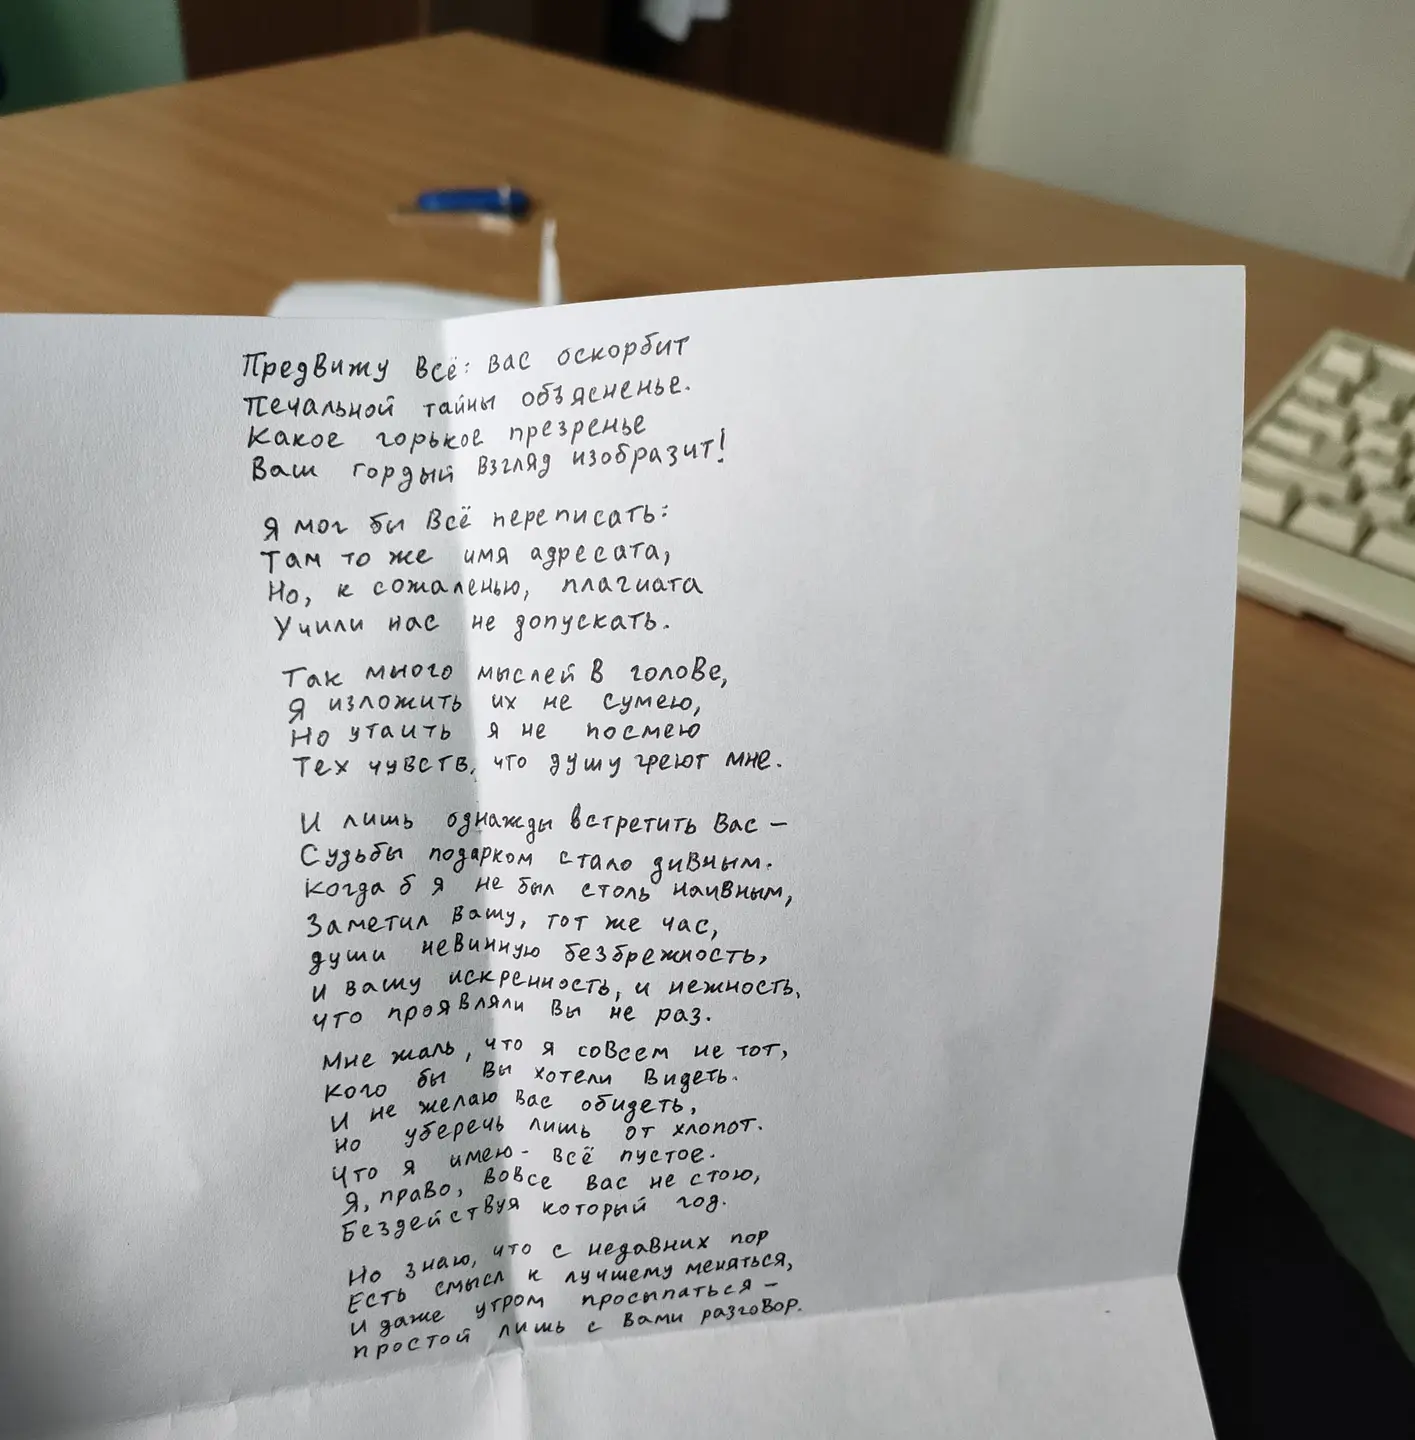 Предвижу всё: вас оскорбит
Печальной тайны объясненье.
Какое горькое презренье
Ваш гордый взгляд изобразит!
Я мог бы всё переписать:
Там то же имя адресата,
Но, к сожаленью, плагиата
Учили нас не допускать.
Так много мыслей в голове,
Я изложить их не сумею,
Но утаить я не посмею
Тех чувств, что душу греют мне.
И лишь однажды встретить Вас –
Судьбы подарком стало дивным.
Когда б я не был столь наивным,
Заметил Вашу, тот же час,
души невинную безбрежность,
и Вашу искренность, и нежность,
что проявляли Вы не раз.
Мне жаль, что я совсем не тот,
кого бы Вы хотели видеть.
И не желаю Вас обидеть,
но уберечь лишь от хлопот.
Что я имею - всё пустое.
Я, право, вовсе Вас не стою,
Бездействуя который год.
Но знаю, что с недавних пор
Есть смысл к лучшему меняться,
и даже утром просыпаться –
простой лишь с Вами разговор.